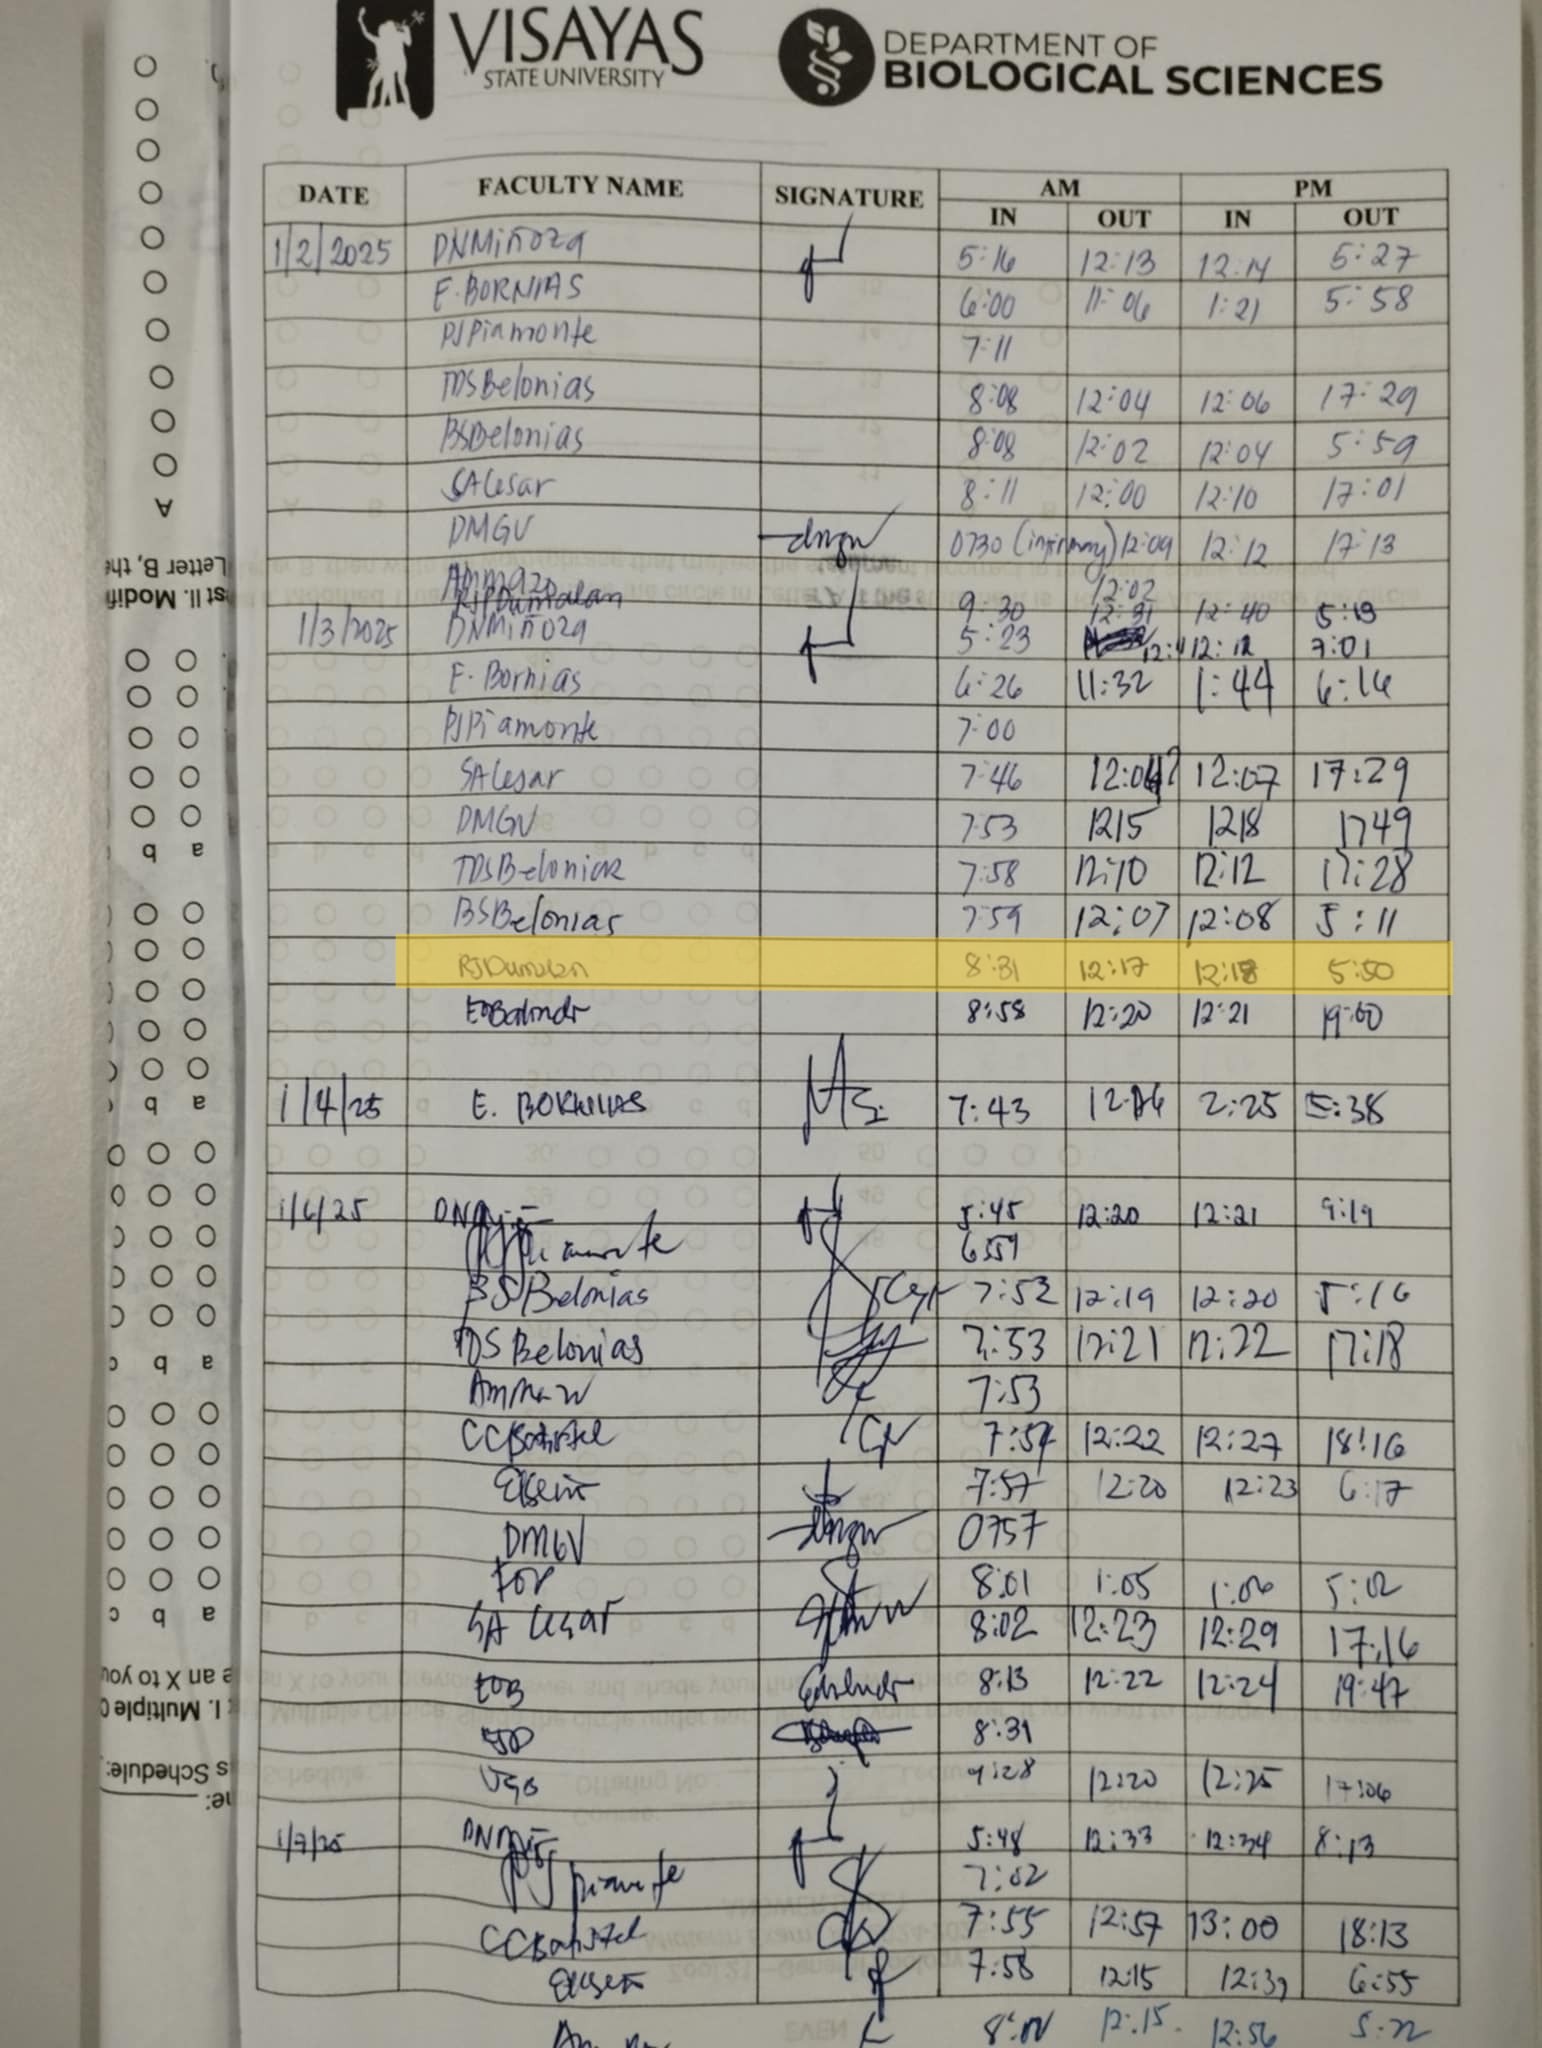 VISAYAS
STATE UNIVERSITY
DEPARTMENT OF
BIOLOGICAL SCIENCES
DATE FACULTY NAME SIGNATURE AM PM
IN OUT IN OUT
1/2/2025 DNMiñoza 5:16 12:13 12:14 5:27
E. BORNIAS 6:00 11:06 1:21 5:58
PJPiamonte 7:11
TDSBelonias 8:08 12:04 12:06 17:29
BSBelonias 8:08 12:02 12:04 5:59
SACesar 8:11 12:00 12:10 17:01
DMGV 0730 (infirmary) 12:09 12:12 17:13
12:02
RJPDumalan 9:30 12:31 12:40 5:19
1/3/2025 DNMiñoza 5:23 12:12 7:01
E. Bornias 6:26 11:32 1:44 6:16
PJPiamonte 7:00
SACesar 7:46 12:07 17:29
DMGV 7:53 1215 1218 1749
TDSBelonias 7:58 12:10 12:12 17:28
BSBelonias 7:59 12:07 12:08 5:11
8:31 12:17 12:18 5:50
8:58 12:20 12:21 19:00
1/4/25 E. BORNIAS 7:43 2:25 5:38
1/6/25 5:45 12:20 12:21 9:19
PJPiamonte 6:59
BSBelonias 7:52 12:19 12:20 5:16
TDS Belonias 7:53 12:21 12:22 17:18
7:53
CCBatistel 7:54 12:22 12:27 18:16
7:57 12:20 12:23 6:17
DMGV 0757
8:01 1:05 1:06 5:02
SA Cesar 8:02 12:23 12:29 17:16
EOB 8:13 12:22 12:24 19:47
8:31
9:28 12:20 12:25 17:06
1/7/25 5:48 12:33 12:34 8:13
PJPiamonte 7:02
CCBatistel 7:55 12:57 13:00 18:13
7:58 12:15 12:39 6:55
12:15 12:56 5:22
A
Letter B, the
st II. Modifi
a b
a b c
e an X to you
I. Multiple C
s Schedule:
ne: